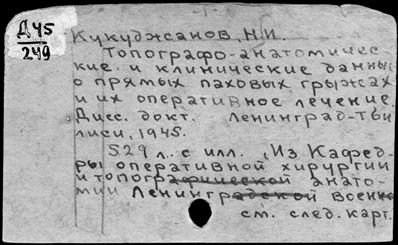 Д45
249
Кукуджанов, Н.И.
Топографо-анатомичес-
кие и клинические данные
о прямых паховых грыжах
и их оперативное лечение.
Дисс. докт. Ленинград-Тби
лиси, 1945.
529 л. с илл. Из Кафед-
ры оперативной хирургии
и топографической анато-
мии Ленинградской военно
см. след. карт.